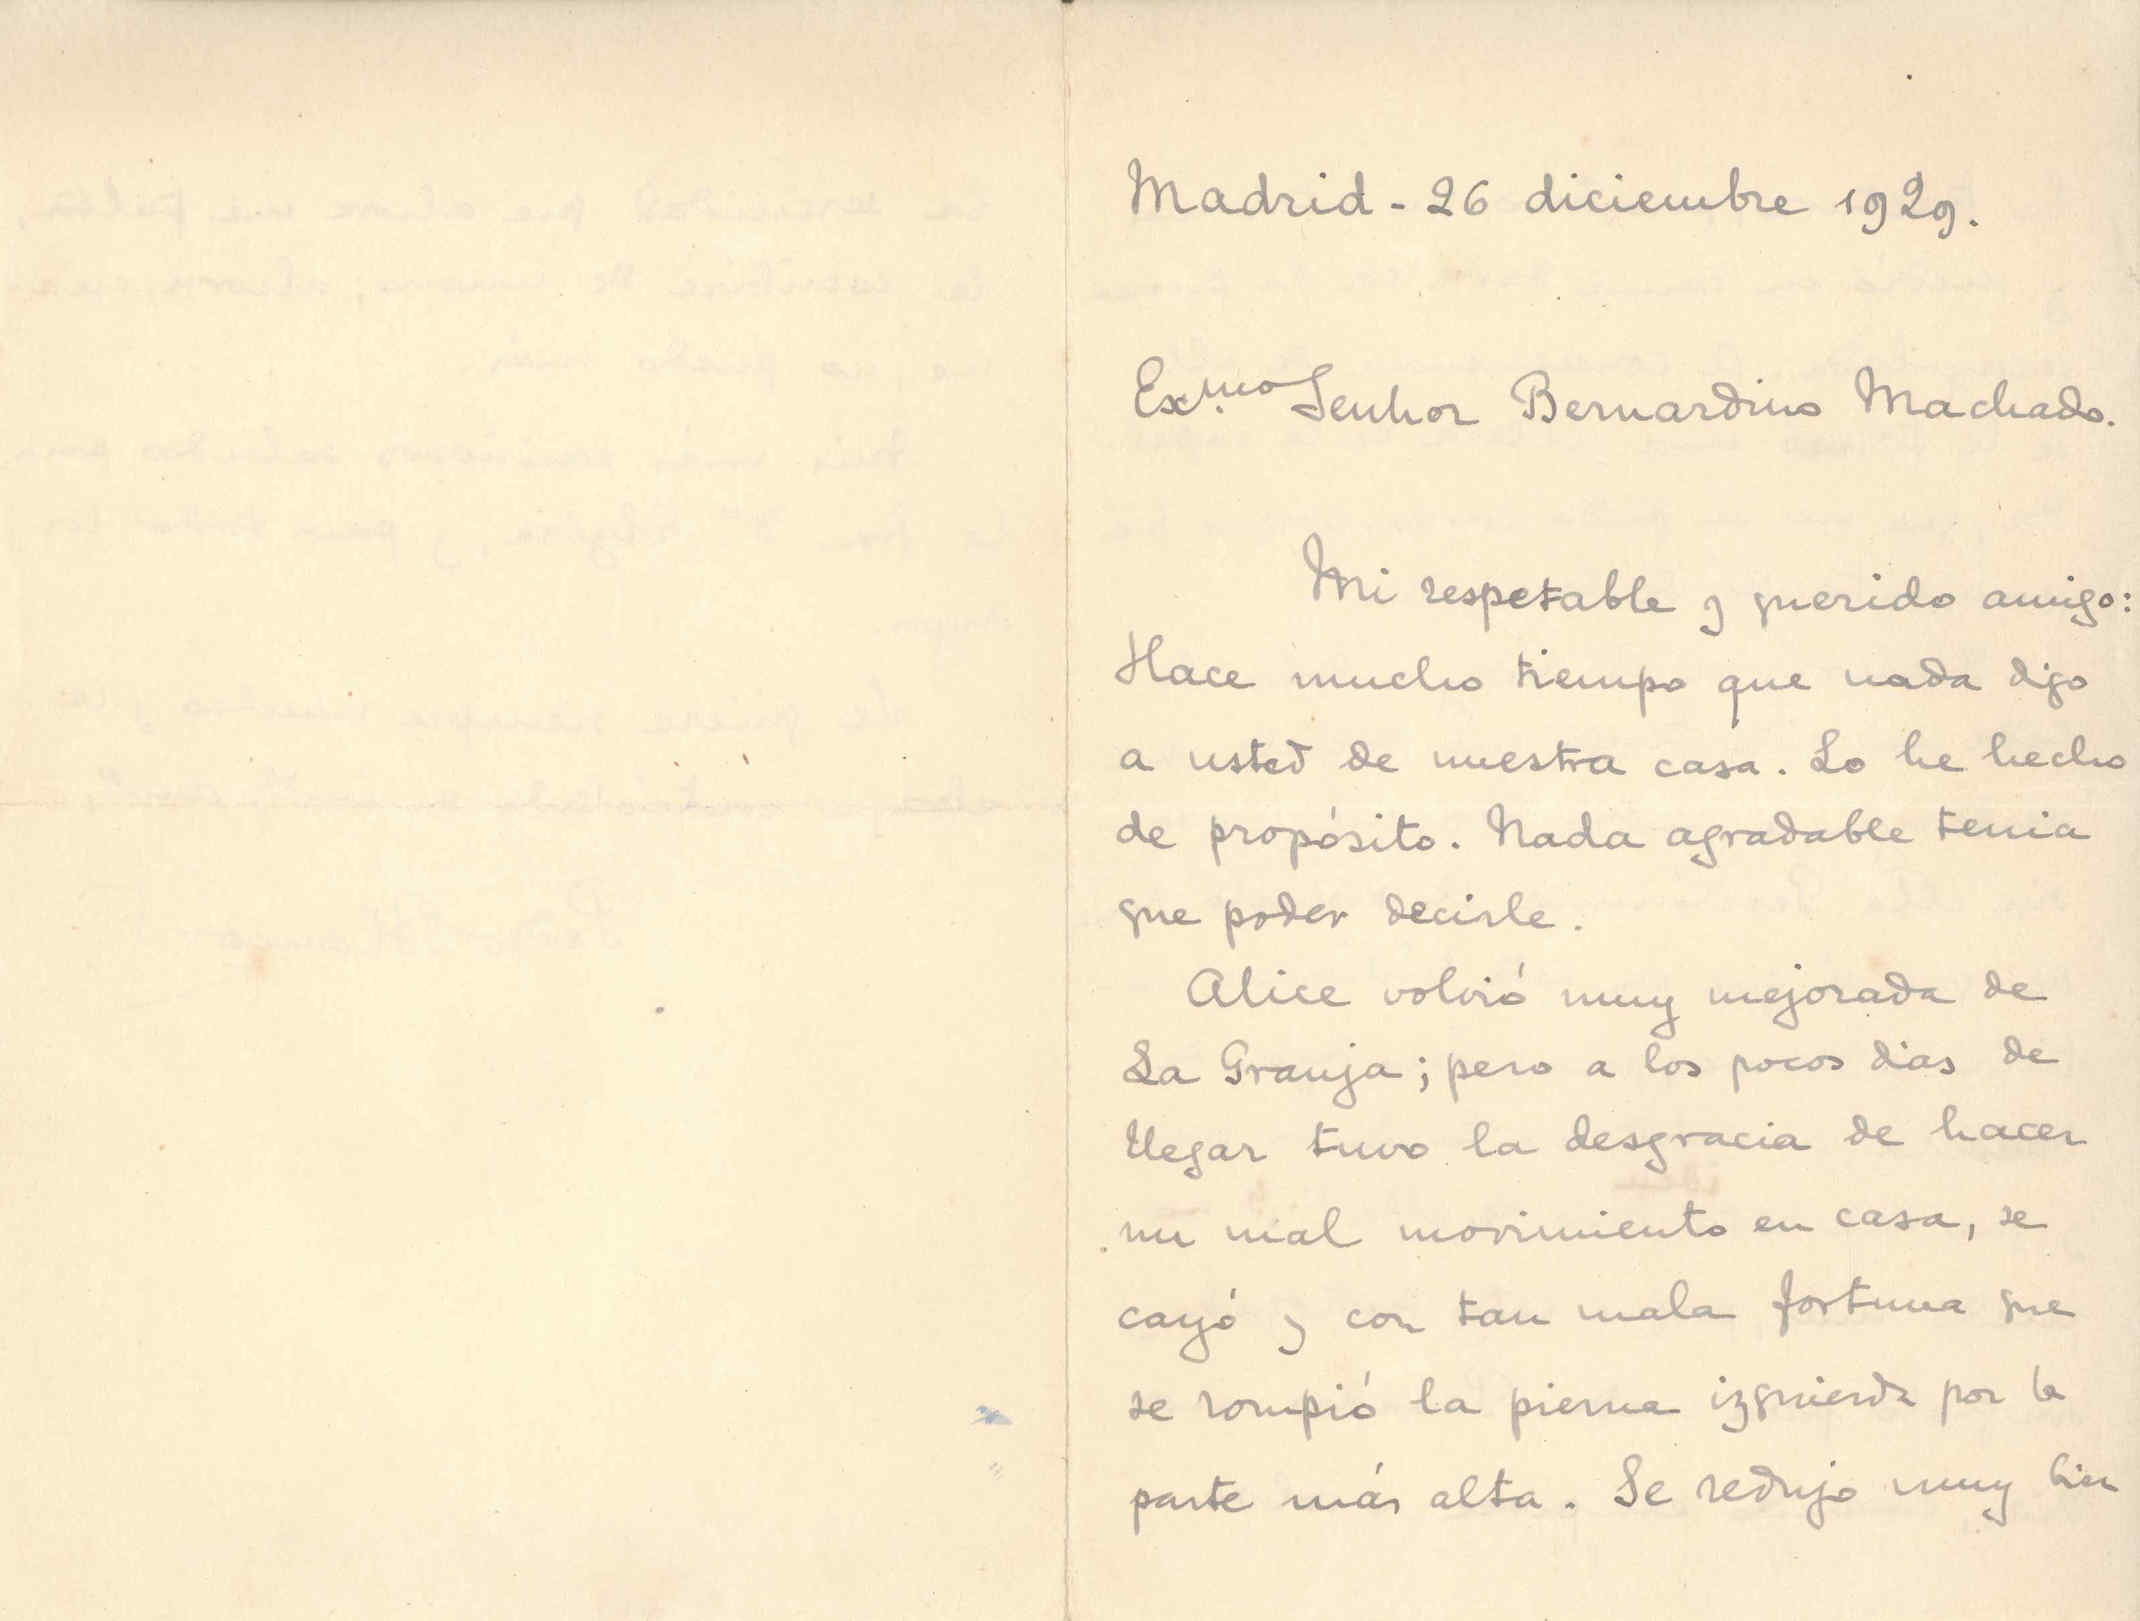 Madrid - 26 diciembre 1929.
Ex.mo Senhor Bernardino Machado.
Mi respetable y querido amigo:
Hace mucho tiempo que nada digo
a usted de nuestra casa. Lo he hecho
de propósito. Nada agradable tenia
que poder decirle.
Alice volvió muy mejorada de
La Granja; pero a los pocos dias de
llegar tuvo la desgracia de hacer
un mal movimiento en casa, se
cayó y con tan mala fortuna que
se rompió la pierna izquierda por la
parte más alta. Se redujo muy bien